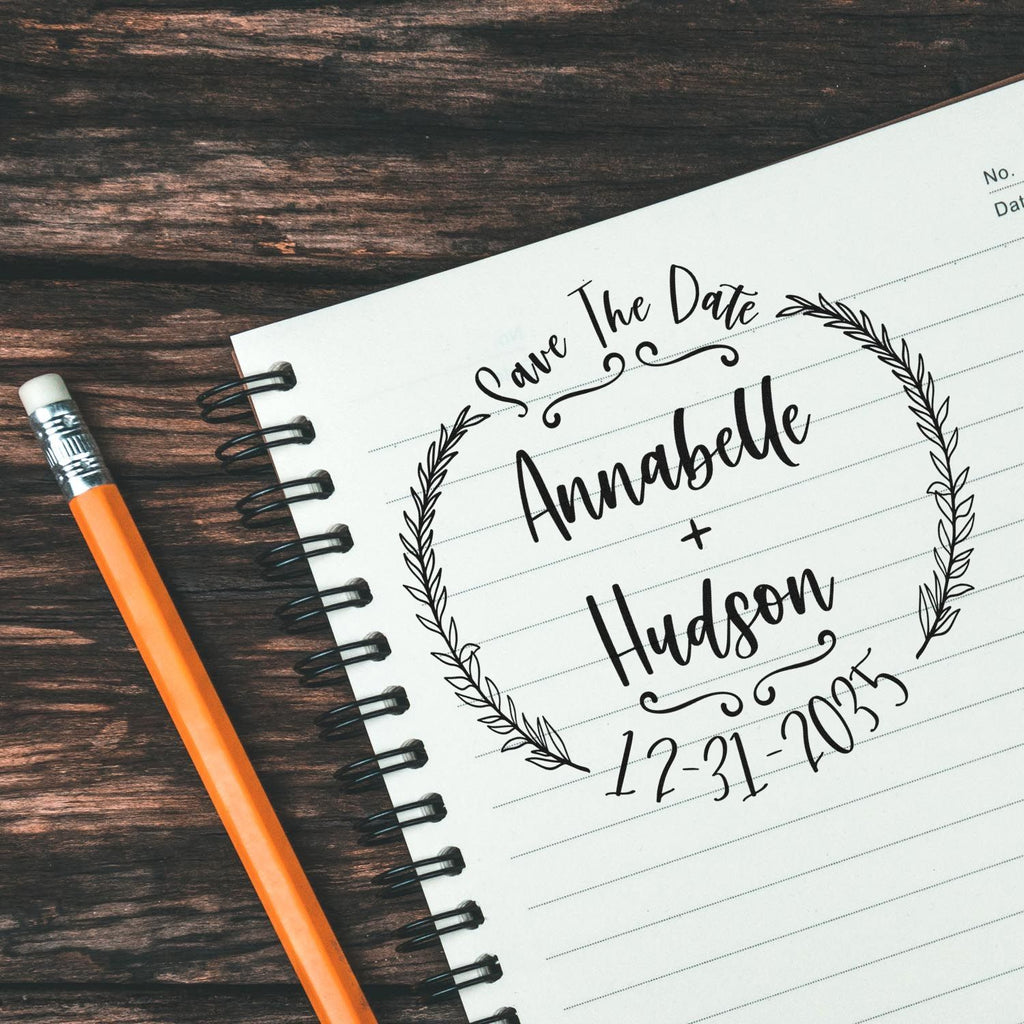 No.
Save The Date
Annabelle
+
Hudson
12-31-2035